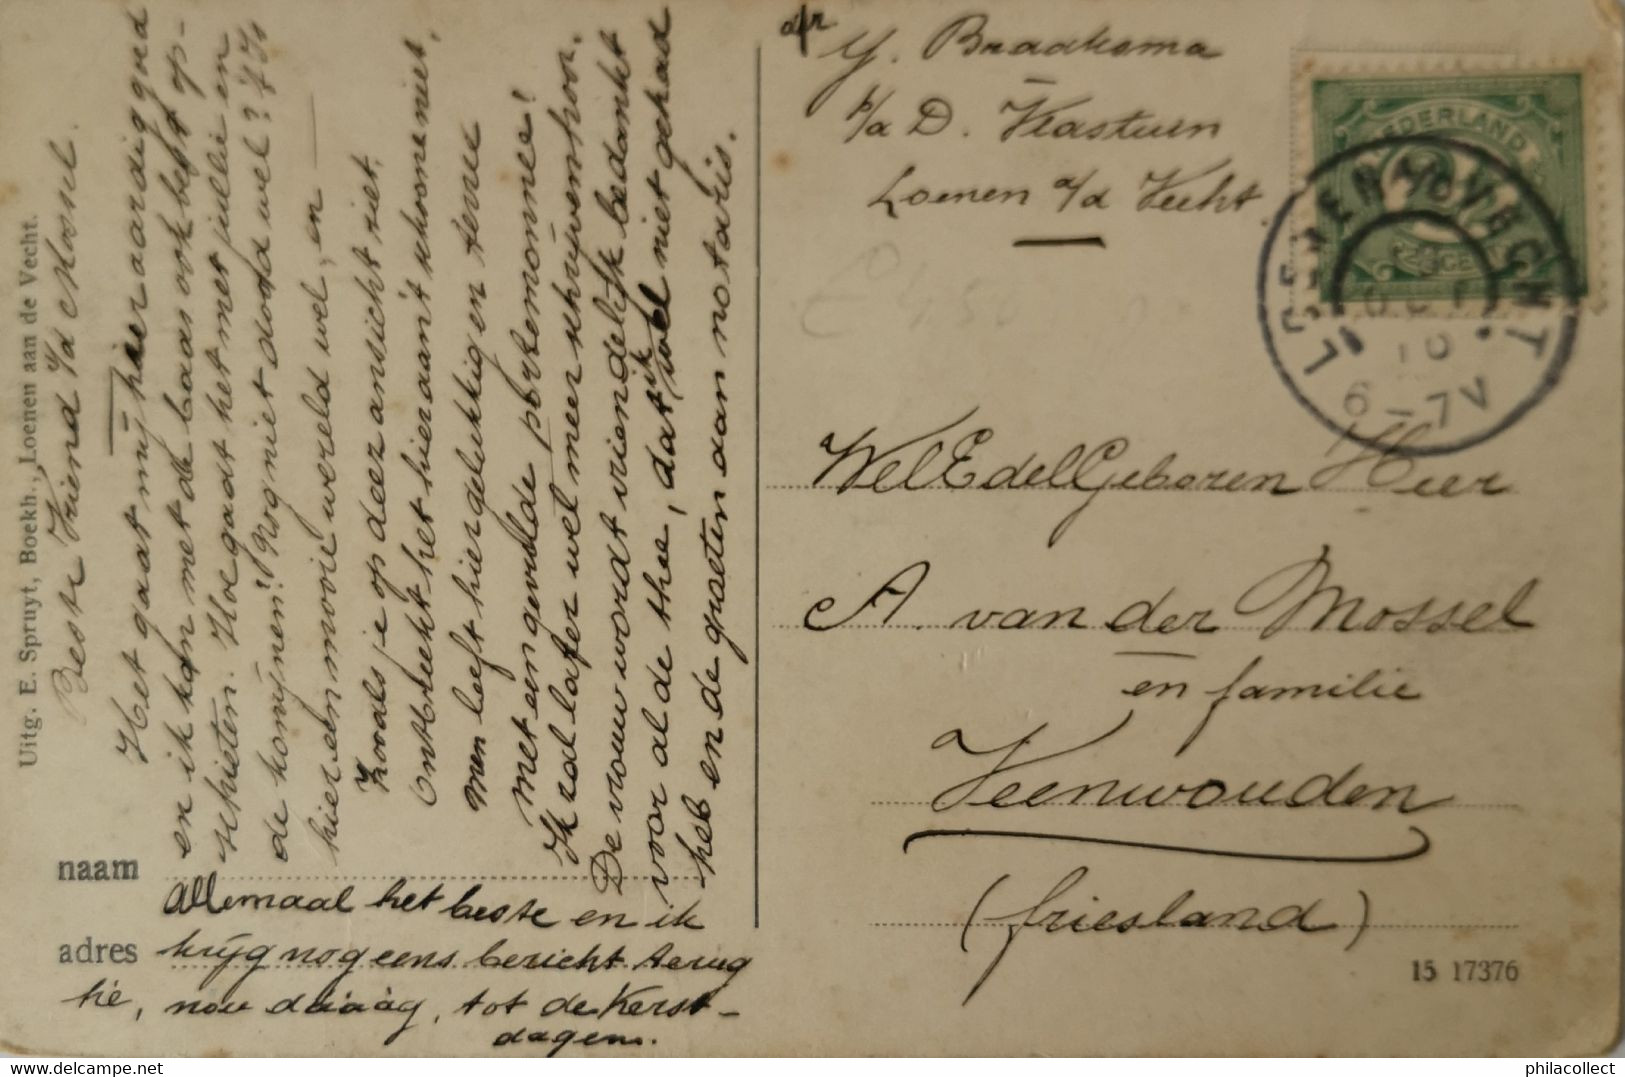 Uitg. E. Spruyt, Boekh., Loenen aan de Vecht.
Beste Vriend v/d
Het gaat mij hier aardig goed
en ik kan met de baas ook best op-
schieten. Hoe gaat het met jullie en
de konijnen? Nog niet dood wel? 't Is
hier een mooie wereld wel, en
zooals je op deez ansicht ziet,
ontbreekt het hieraan 't schoone niet,
Men leeft hier gelukkig en teree
met een gevulde portemonnee!
Ik zal later wel meer schrijven hoor.
De vrouw wordt vriendelijk bedankt
voor al de thee, dat ik wel niet gehad
heb en de groeten aan notaris.
naam
Allemaal het beste en ik
adres
krijg nog eens bericht terug
hè, nou dáááág, tot de Kerst-
dagen.
afz
Y. Braaksma
p/a D. Verstuin
Loenen a/d Vecht
£ 4,50
NEDERLAND
LOENEN (UTRECHT
OCT
10
6-7V
WelEdelGeboren Heer
A. van der Mossel
en familie
Veenwouden
(Friesland)
15 17376
philacollect.com
philacollect